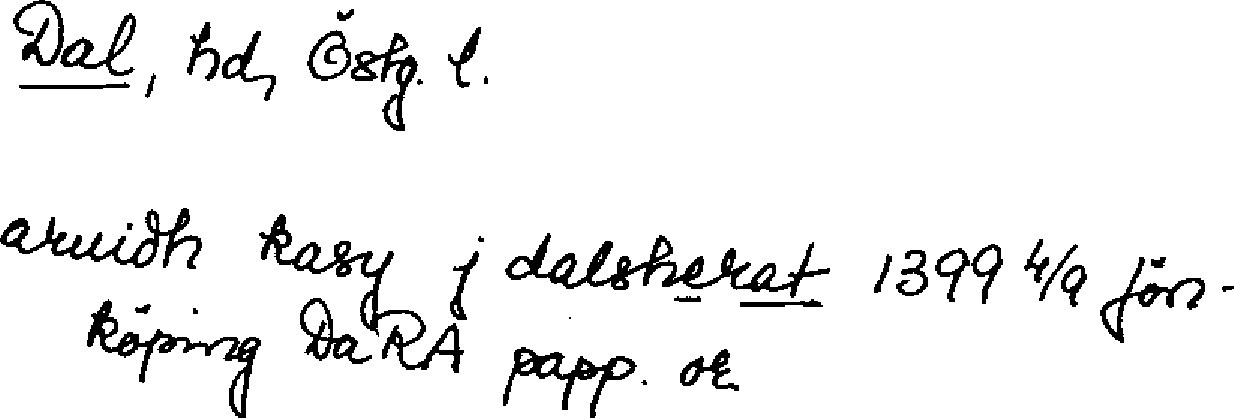 Dal, hd, Östg. l.
aruidh kasy j dalsherat 1399 4/9 Jön-
köping DaRA papp. or.